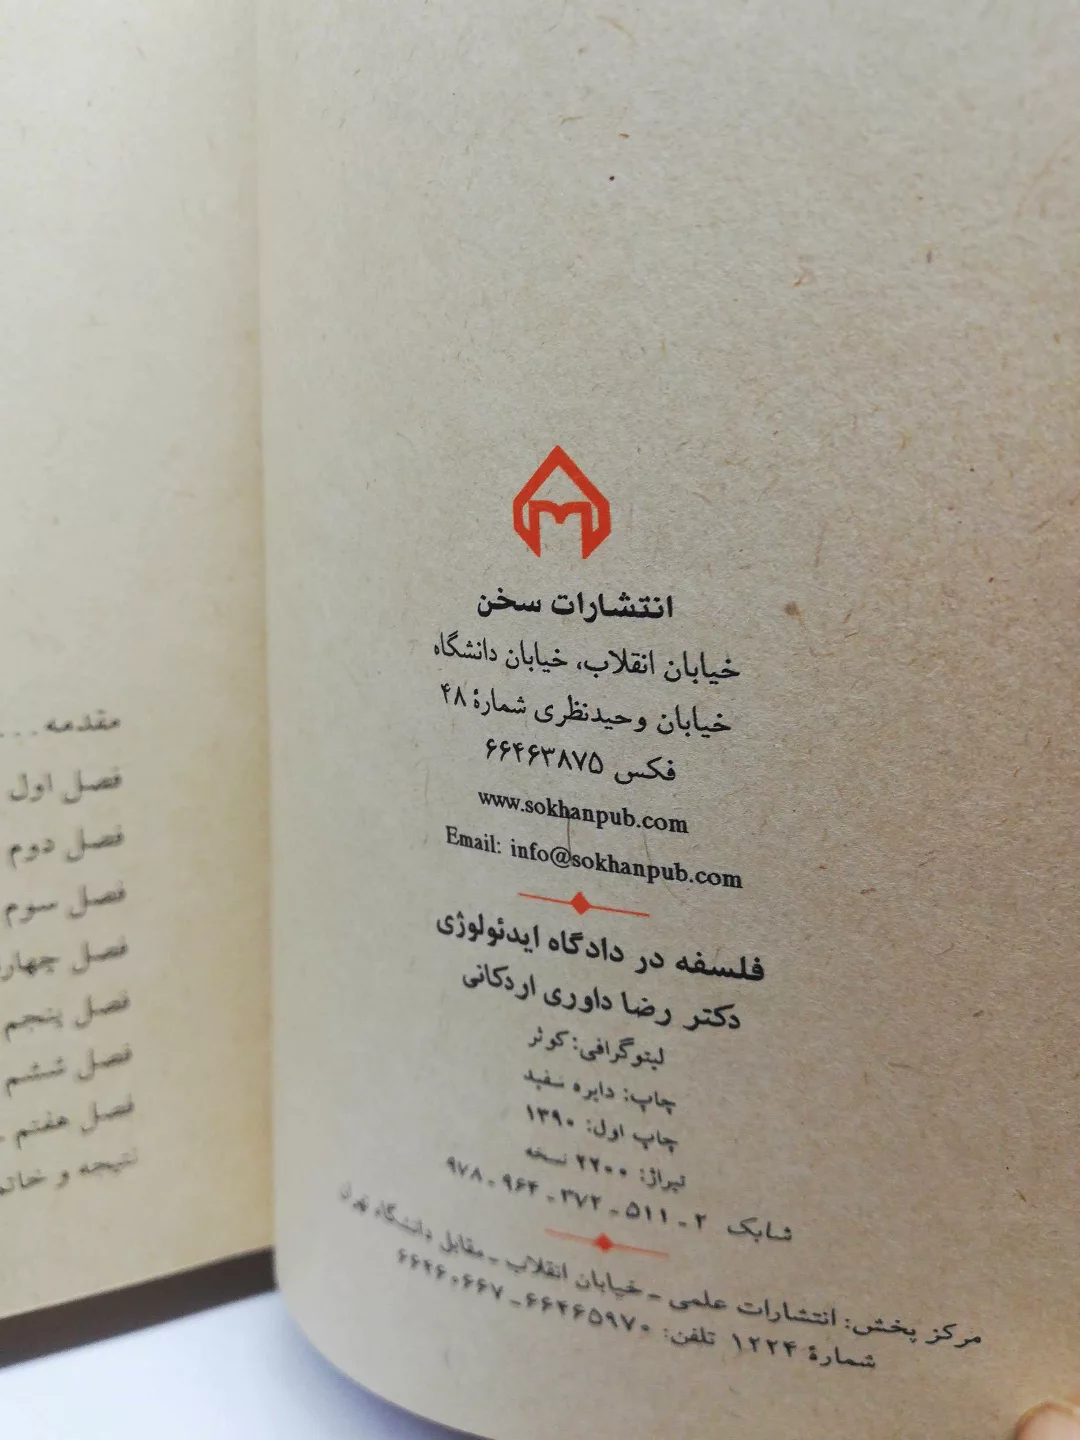 انتشارات سخن
خیابان انقلاب، خیابان دانشگاه
خیابان وحیدنظری شمارهٔ ۴۸
فکس ۶۶۴۶۳۸۷۵
www.sokhanpub.com
Email: info@sokhanpub.com
فلسفه در دادگاه ایدئولوژی
دکتر رضا داوری اردکانی
لیتوگرافی: کوثر
چاپ: دایره سفید
چاپ اول: ۱۳۹۰
تیراژ: ۲۲۰۰ نسخه
شابک ۲ ـ ۵۱۱ ـ ۳۷۲ ـ ۹۶۴ ـ ۹۷۸
مرکز پخش: انتشارات علمی ـ خیابان انقلاب ـ مقابل دانشگاه تهران
شمارهٔ ۱۲۲۴ تلفن: ۶۶۴۶۵۹۷۰ ـ ۶۶۴۶۰۶۶۷
مقدمه...
فصل اول
فصل دوم
فصل سوم
فصل چهار
فصل پنجم
فصل ششم
فصل هفتم
نتیجه و خاتم